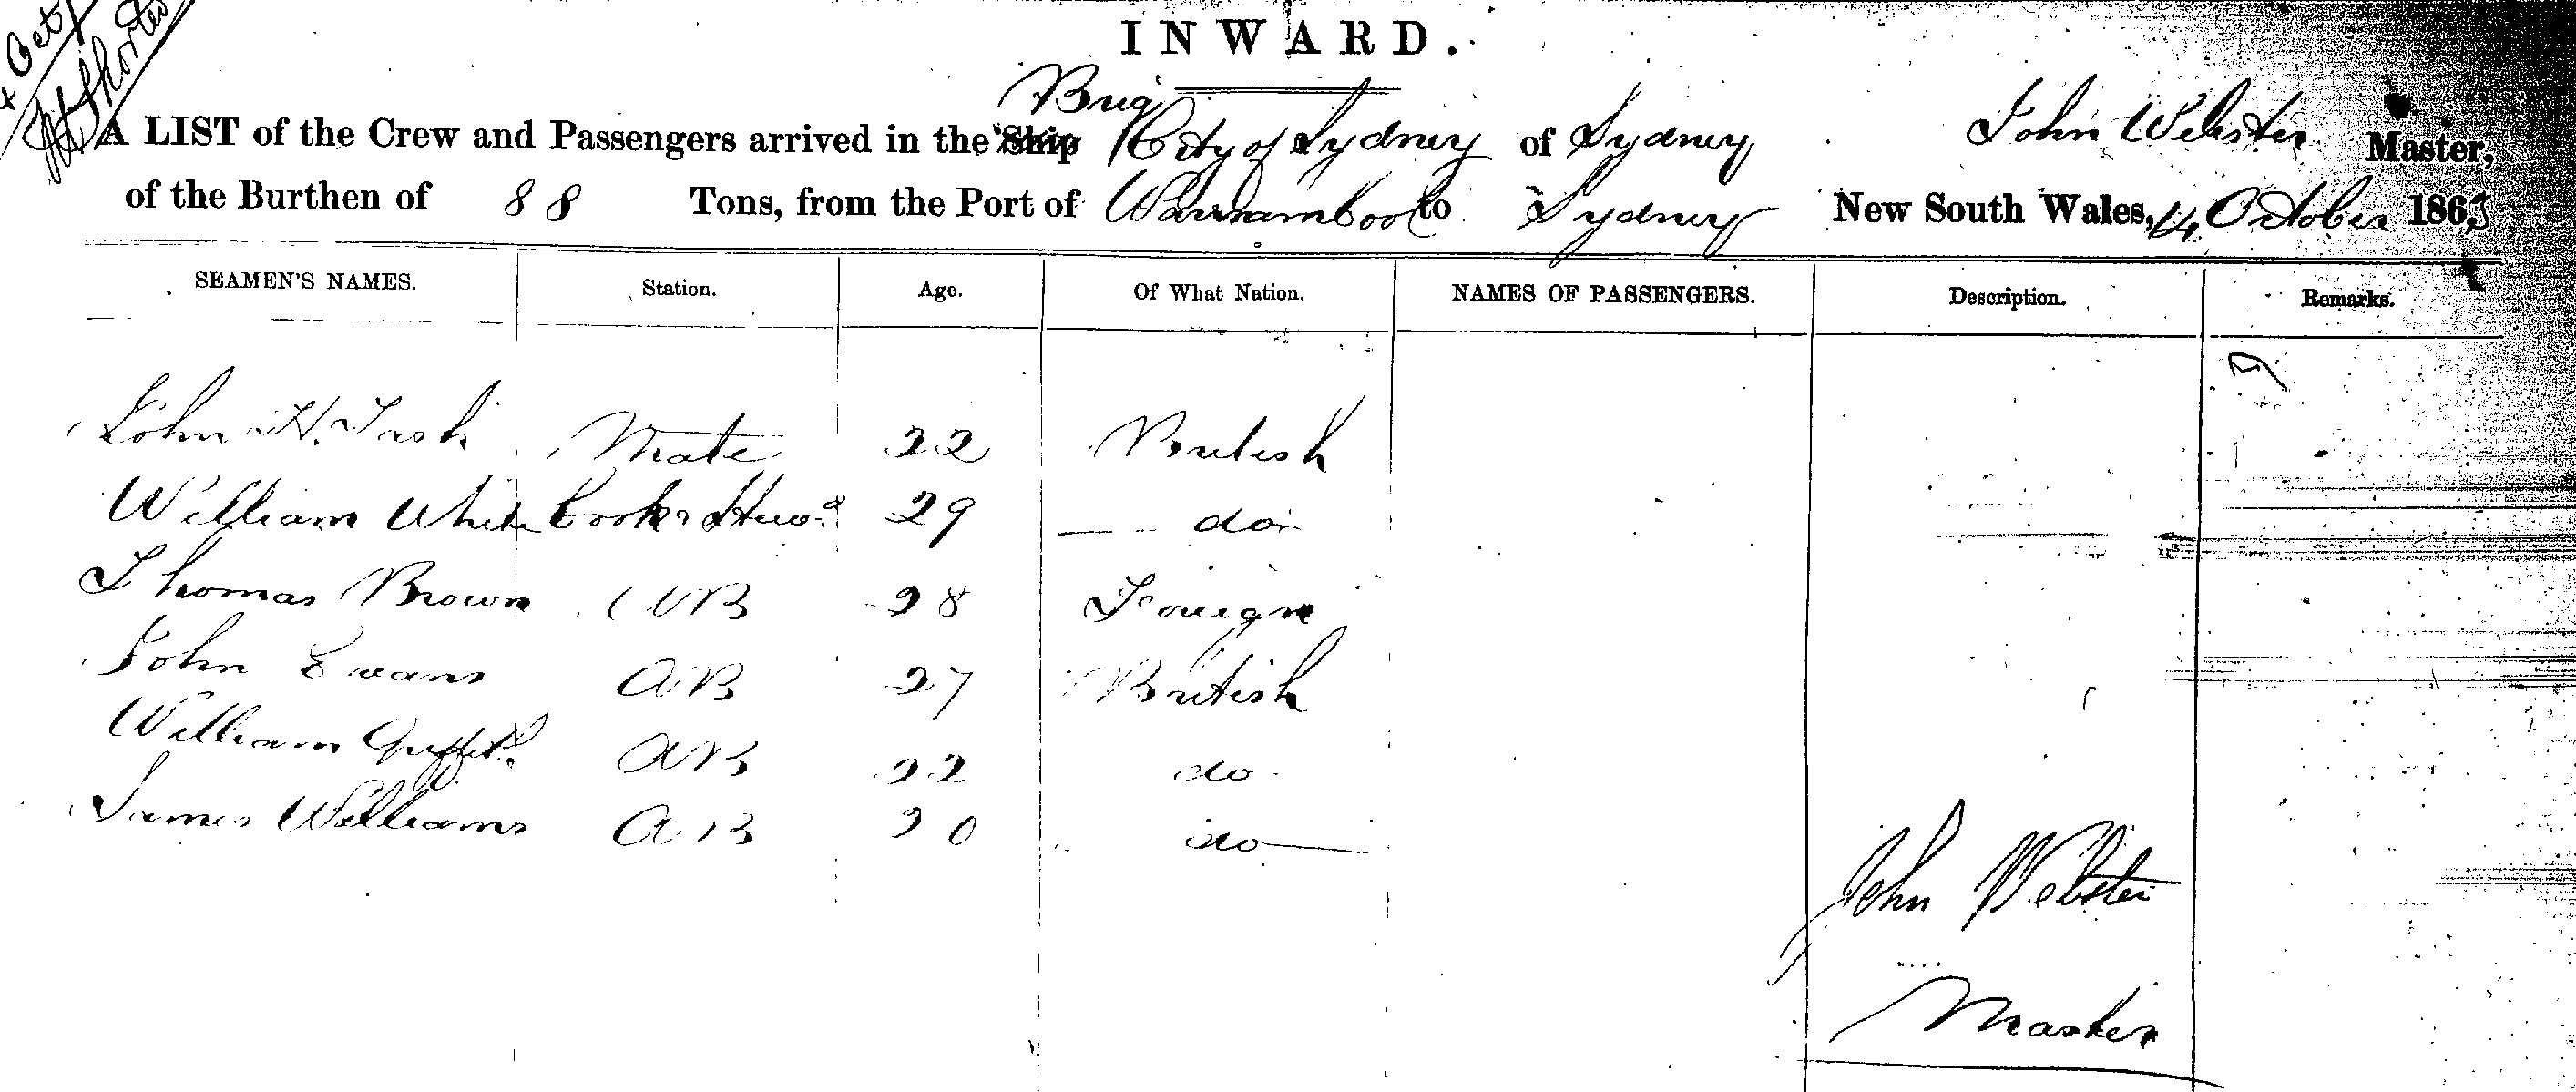 Oct
INWARD.
Brig
A LIST of the Crew and Passengers arrived in the Ship City of Sydney of Sydney John Webster Master,
of the Burthen of 88 Tons, from the Port of Warrnambool to Sydney New South Wales, 4 October 1863
SEAMEN'S NAMES. Station. Age. Of What Nation. NAMES OF PASSENGERS. Description. Remarks.
John H. Mate 22 British
William White Cook & Stewd 29 do
Thomas Brown AB 28 Foreign
John Evans AB 27 British
William AB 22 do
James Williams AB 20 do
John Webster
Master